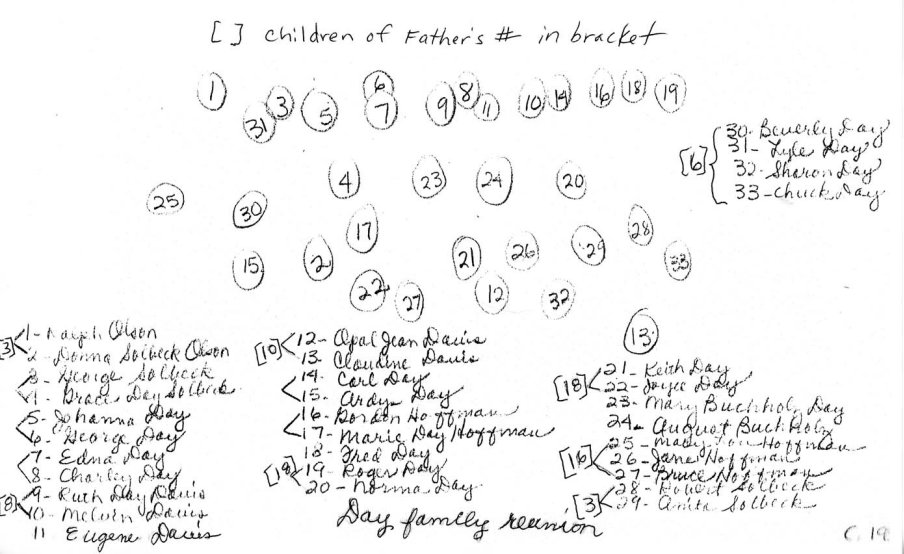 [ ] children of Father's # in bracket
1 3 31 5 6 7 9 8 11 10 14 16 18 19
25 30 4 23 24 20
15 2 17 22 27 21 26 12 29 32 28 33
13
[6] 30- Beverly Day
31- Lyle Day
32- Sharon Day
33- Chuck Day
[3] 1- Ralph Olson
2- Donna Solbeck Olson
3- George Solbeck
4- Grace Day Solbeck
5- Johanna Day
6- George Day
7- Edna Day
8- Charley Day
[8] 9- Ruth Day Davis
10- Melvin Davis
11 Eugene Davis
[10] 12- Opal Jean Davis
13- Claudine Davis
14- Carl Day
15- Ardys Day
16- Gordon Hoffman
17- Marie Day Hoffman
18- Fred Day
[18] 19- Roger Day
20- Norma Day
[18] 21- Keith Day
22- Joyce Day
23- Mary Buchholz Day
24- August Buchholz
25- Mary Lou Hoffman
[16] 26- Jane Hoffman
27- Bruce Hoffman
[3] 28- Robert Solbeck
29- Anita Solbeck
Day family reunion
C. 19